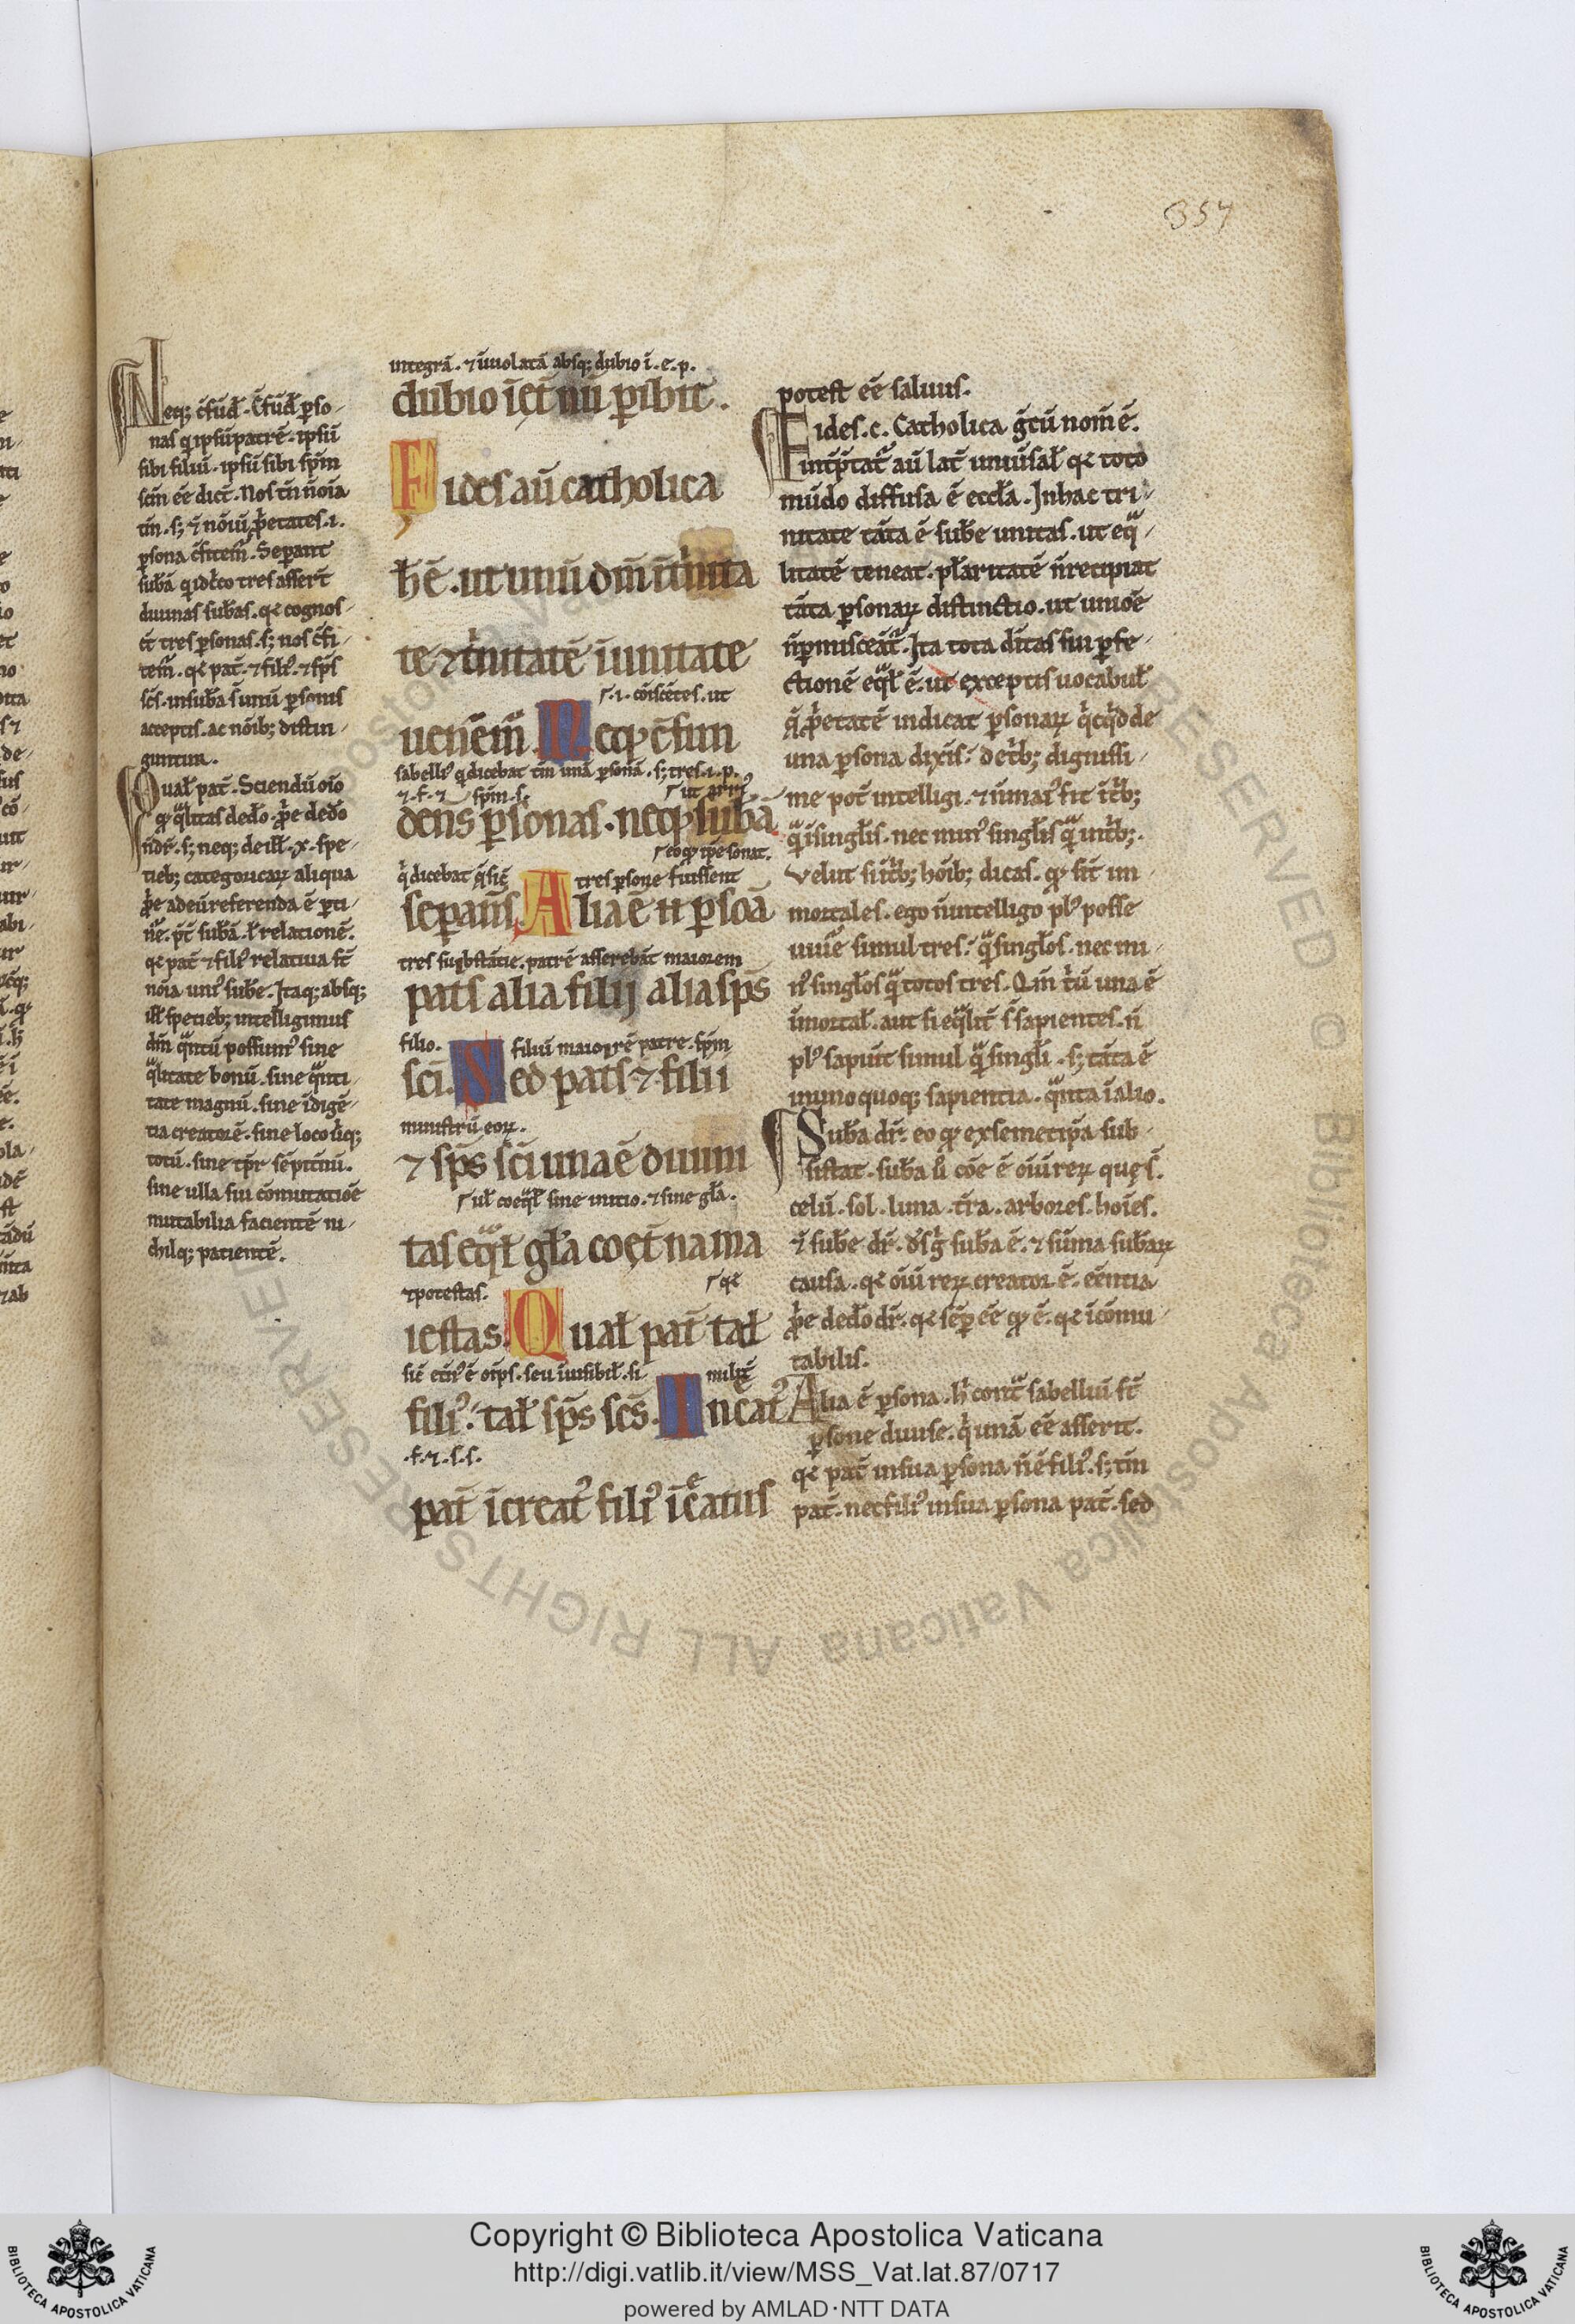 357
Neq; c̄fud̄. C̄fud̄ p̱so-
nas q ip̄sū patrē. ip̄sū
sibi filiū. ip̄sū sibi sp̄m
sc̄m eē dict̄. Nos tn̄ nōīa
tm̄. s; & nōīū p̄etates .i.
p̱sona c̄fitem̄. Sep̱ant
sub̄ā q idc̄o tres assert̄
diuinas sub̄as. qe cognos-
c̄t tres p̱sonas. s; nos c̄fi-
tem̄. qe pat̄. ⁊ fili᾽. ⁊ sp̄s
sc̄s. in sub̄a s̄ unū p̱sonis
acceptis. ac nōib; distin-
guntur.
Qual̄ pat̄. Sciendū oīo
qp qͣlitas de dō. p̄e de dō
n̄ dr̄. s; neq; de ill̄ .x. spe-
tieb; categoricaꝝ aliqua
p̄e ad eū referenda ē p̱ti-
n̄e. p̄t sub̄ā. l̄ relationē.
qe pat̄ ⁊ fili᾽ relatiua st̄
nōīa uni᾽ sub̄e. Itaq; absq;
ill̄ spetieb; intelligimus
dm̄ qͣntū possum᾽ sine
qͣlitate bonū. sine qͣnti-
tate magnū. sine īdigē-
tia creatorē. sine loco ub̄iq;
totū. sine tp̄r sēpit̄nū.
sine ulla sui cōmutatiōe
mutabilia facientē ni-
chilq; patientē.
integrā. ⁊ īuiolatā absq; dubio ī. e. p.
dubio īet̄nū p̱ibit.
Fides aū catholica
h̄ ē. ut unū dm̄ ī tͥnita
te ⁊ tͥnitatē ī unitate
⸢.i. cōiscētes. ut
uenem̄. Neqp c̄fun
sabelli᾽ q dicebat tm̄ unā p̱sonā. s; tres .i. p.
⁊. f. ⁊ sp̄m. s. ⸢ut arri᾽
dens p̱sonas. neqp sub̄ā
⸢eo qp ip̄e sonat.
qͥ dicebat qͣ sic̄ tres p̱sone fuissent
sep̱an̄s. Alia ē n̄ p̱soā
tres substātie. patrē asserebāt maiorem
pat̄s alia filij alia sp̄s
filio. filiū maiorē patre. sp̄m
sc̄i. Sed pat̄s ⁊ filii
ministrū eoꝝ.
⁊ sp̄s sc̄i una ē diuini
⸢ul̄ coeqͣl̄ sine initio. ⁊ sine gl̄a.
tas eqͣl̄ gl̄a coet̄na ma
⁊ potestas. ⸢qe
iestas. Qual̄ pat̄ tal̄
sic̄ et̄n᾽ ē oīps. seu īuisibil̄. si
fili᾽. tal̄ sp̄s sc̄s. Increat᾽
.f. ⁊. s. s.
pat̄ īcreat᾽ fili᾽ īcreatus
potest eē saluus.
Fides .c. Catholica ḡcū nom̄ ē.
int̄p̄tat᾽ aū lat̄ uniūsal̄ qe toto
mūdo diffusa ē eccl̄a. In hac tri-
nitate tāta ē sub̄e unitas. ut eqͣ-
litatē teneat. pl̄aritatē n̄ recipiat
tāta p̱sonaꝝ distinctio. ut uniōē
n̄ p̱misceāt᾽. Ita tota dīitas sui p̱fe-
ctionē eqͣl̄ ē. ut exceptis uocabul̄
q̄ p̄etatē indicat p̱sonaꝝ qͥcqͥd de
una p̱sona dix̄is. de tͥb; dignissi-
me pot̄ intelligi. ⁊ n̄ mai᾽ sit ī tͥb;
qͣ ī singl̄is. nec min᾽ singl̄is qͣ in tͥb;.
Velut si ī tͥb; hōib; dicas. qp sīt im-
mortales. ego n̄ intelligo pl᾽ posse
uiu᾽e simul tres. qͣ singl̄os. nec mi-
n᾽ singl̄os qͣ totos tres. Qm̄ tͥū una ē
īmortal̄. aut si eqͣlit̄ s̄ sapientes. n̄
pl᾽ sapiūt simul qͣ singl̄i. s; tāta ē
in unoquoq; sapientia. qͣnta ī alio.
Sub̄a dr̄. eo qp ex semetip̄a sub-
sistat. sub̄a u᾽ cōe ē oīū reꝝ quę s̄.
celū. sol. luna. tr̄a. arbores. hoīes.
⁊ sub̄e dr̄. d̄s gͦ sub̄a ē. ⁊ sūma sub̄aꝝ
causa. qe oīū reꝝ creator ē. eēntia
p̄e de dō dr̄. qe sēp̱ eē qp ē. qe īcōmu-
tabilis.
Alia ē p̱sona. h᾽ contͣ sabelliū st̄
p̱sone diuise. qͥ unā eē asserit.
qe pat̄ in sua p̱sona n̄ ē fili᾽. s; tm̄
pat̄. nec fili᾽ in sua p̱sona pat̄. sed
Copyright © Biblioteca Apostolica Vaticana
http://digi.vatlib.it/view/MSS_Vat.lat.87/0717
powered by AMLAD·NTT DATA
BIBLIOTECA APOSTOLICA VATICANA
BIBLIOTECA APOSTOLICA VATICANA